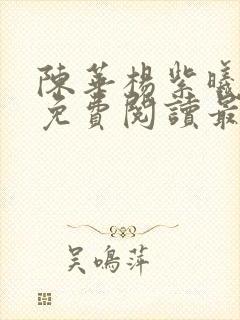 陳華楊紫曦
免費閱讀最
吳鳴萍